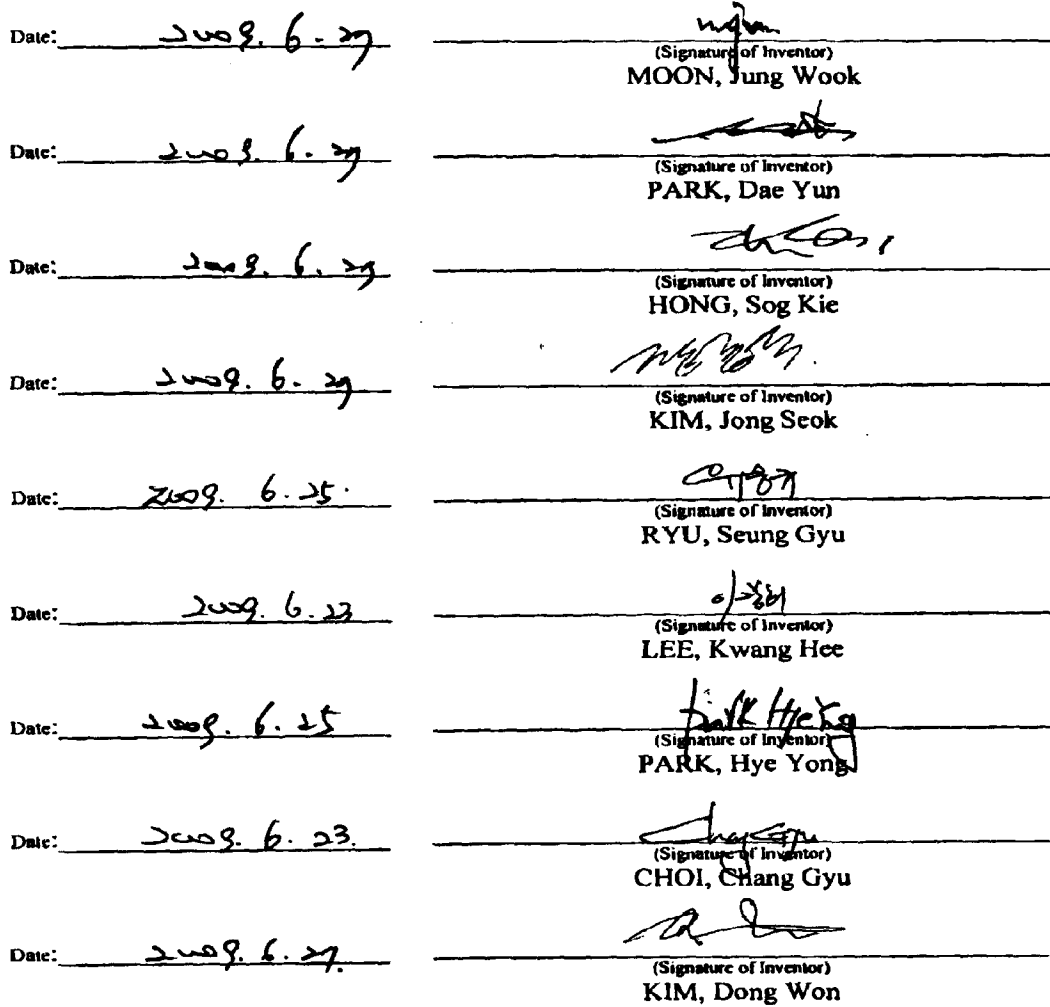 Date: 2009. 6. 29
(Signature of Inventor)
MOON, Jung Wook
Date: 2009. 6. 29
(Signature of Inventor)
PARK, Dae Yun
Date: 2009. 6. 29
(Signature of Inventor)
HONG, Sog Kie
Date: 2009. 6. 29
(Signature of Inventor)
KIM, Jong Seok
Date: 2009. 6. 25.
(Signature of Inventor)
RYU, Seung Gyu
Date: 2009. 6. 23
이광희
(Signature of Inventor)
LEE, Kwang Hee
Date: 2009. 6. 25
Park Hye Yong
(Signature of Inventor)
PARK, Hye Yong
Date: 2009. 6. 23.
(Signature of Inventor)
CHOI, Chang Gyu
Date: 2009. 6. 29.
(Signature of Inventor)
KIM, Dong Won